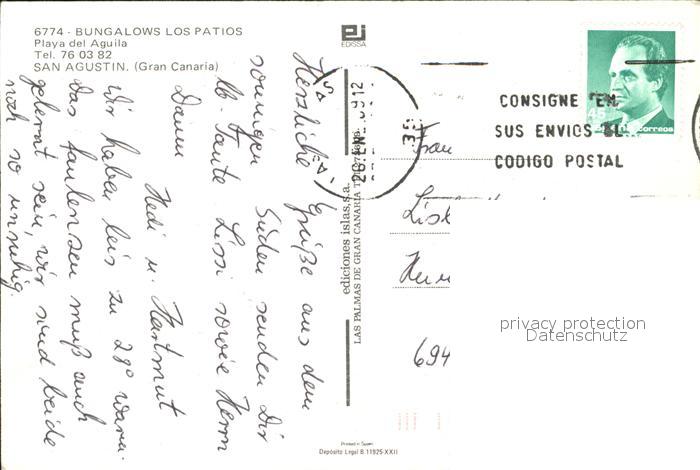 6774 - BUNGALOWS LOS PATIOS
Playa del Aguila
Tel. 76 03 82
SAN AGUSTIN. (Gran Canaria)
EDISSA
Herzliche Grüße aus dem
sonnigen Süden senden Dir
lb. Tante Lissi sowie Herrn
Damm
Hedi u. Hartmut
Wir haben bis zu 28° warm.
Das faulenzen muß auch
gelernt sein, wir sind beide
noch so unruhig.
ediciones islas, s.a.
LAS PALMAS DE GRAN CANARIA
CONSIGNE EN
SUS ENVIOS EL
CODIGO POSTAL
correos
Frau
694
privacy protection
Datenschutz
Printed in Spain
Depósito Legal B. 11925-XXII